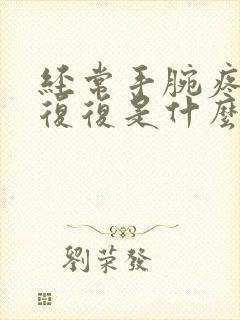 經常手腕疼
復復是什麼
劉榮發